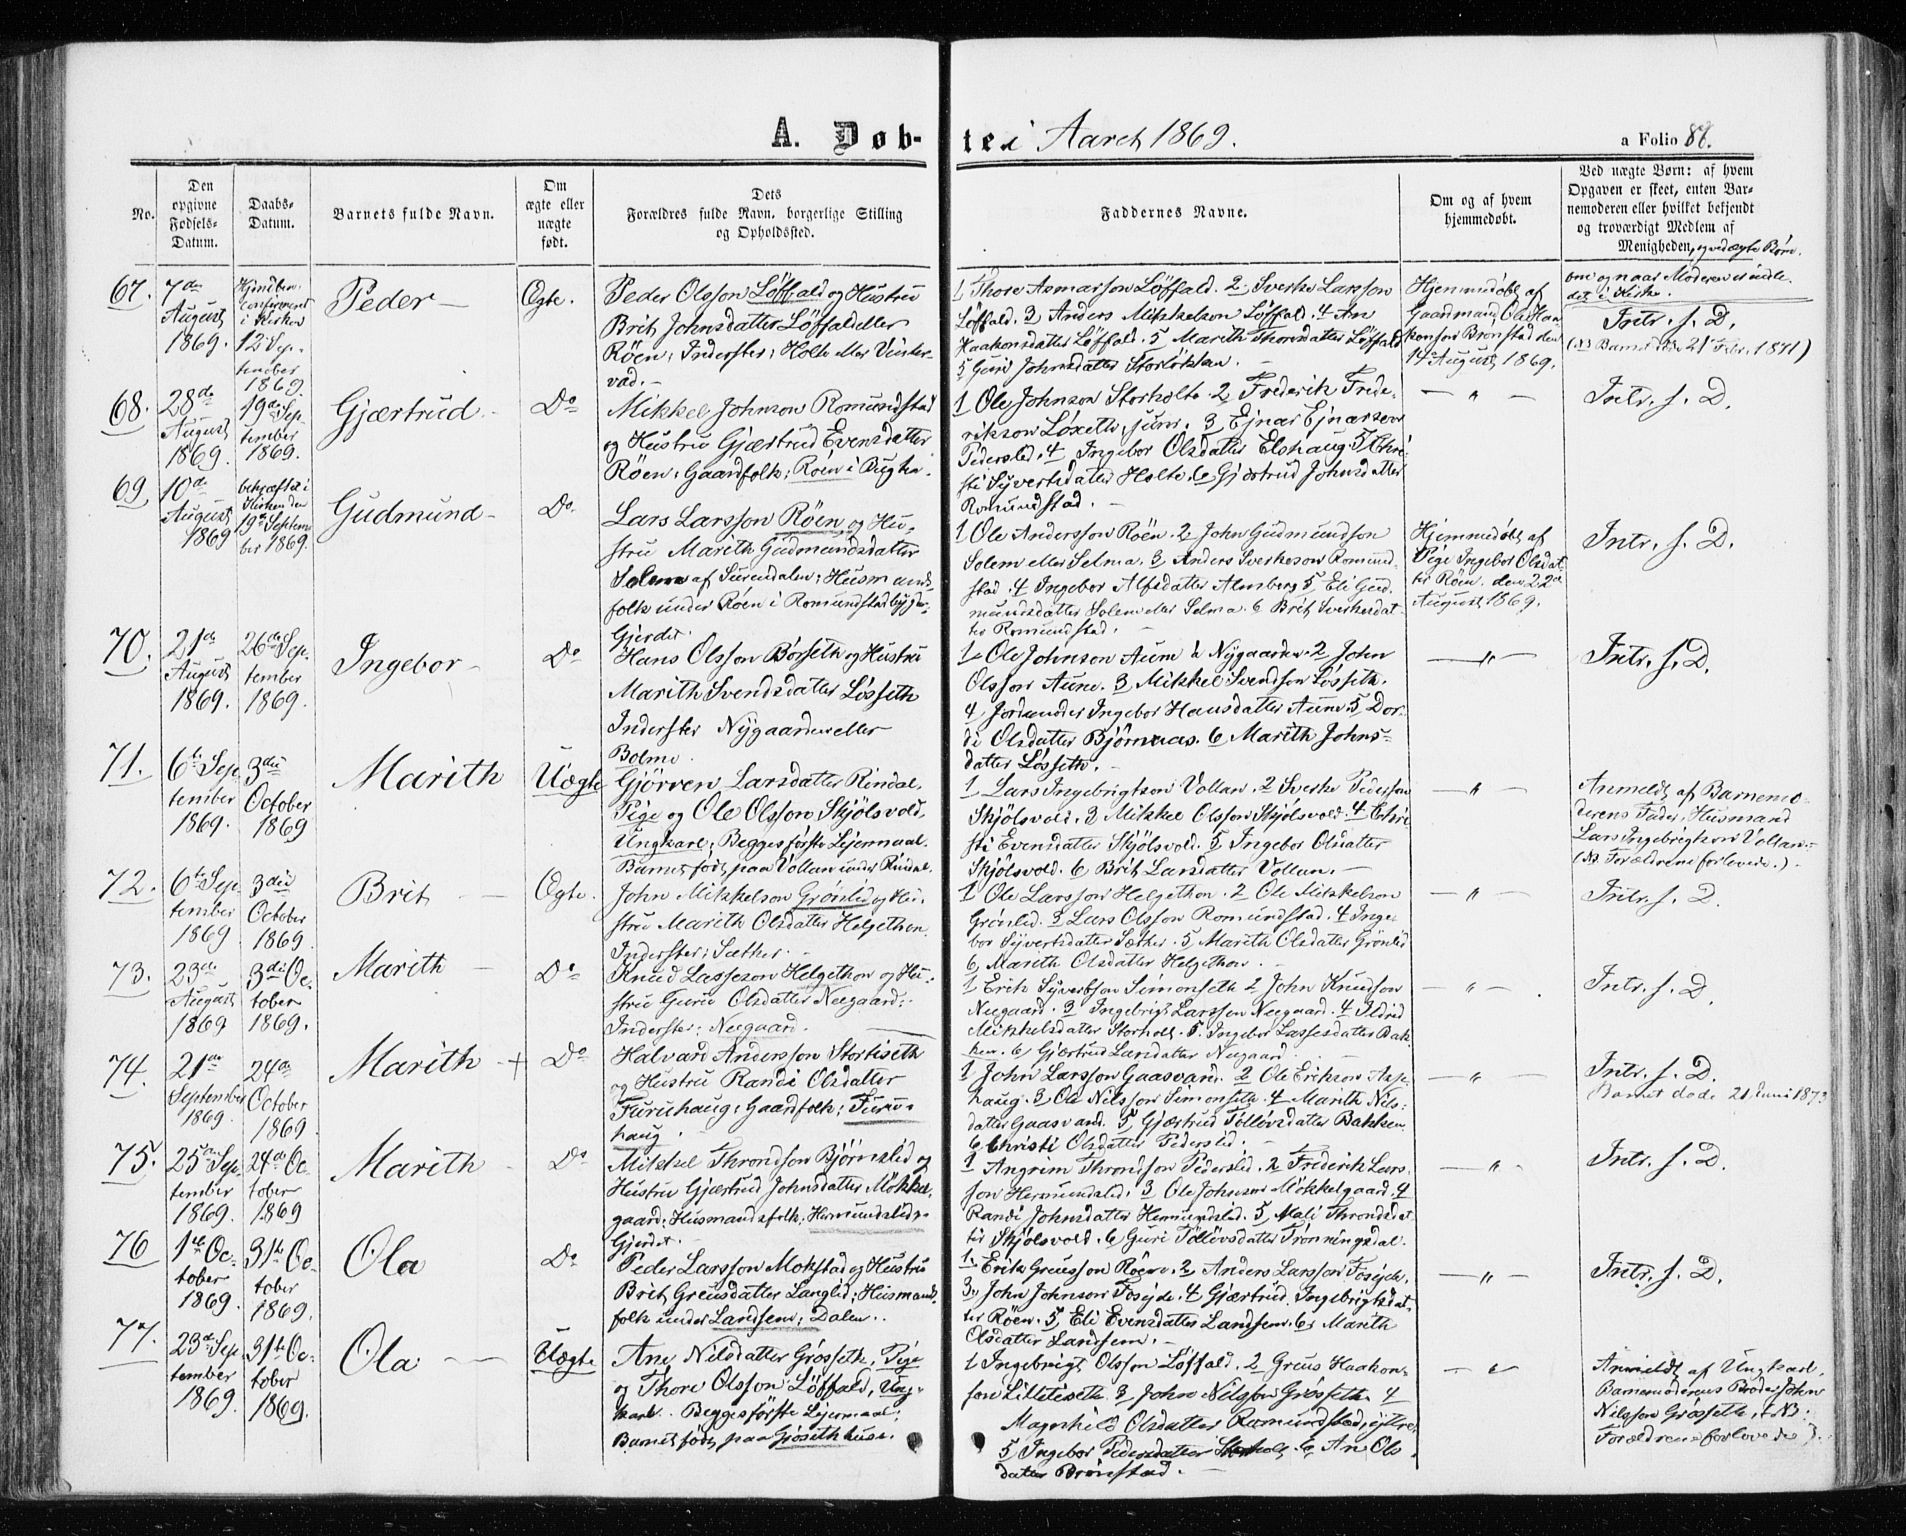 A. Døb-
te i Aaret 1869.
a Folio 86.
No.
Den
opgivne
Fødsels-
Datum.
Daabs-
Datum.
Barnets fulde Navn.
Om
ægte eller
uægte
født.
Dets
Forældres fulde Navn, borgerlige Stilling
og Opholdssted.
Faddernes Navne.
Om og af hvem
hjemmedøbt.
Ved uægte Børn: af hvem
Opgaven er skeet, enten Bar-
nemoderen eller hvilket bekjendt
og troværdigt Medlem af
Menigheden, og ved ægte Børn
om og naar Moderen er indle-
det i Kirke.
67.
7de
August
1869.
confirmeret
i Kirken
12 Sep-
tember
1869
Peder
Ægte.
Peder Olsson Løffald og Hustru
Brit Johnsdatter Løffald eller
Røen, Inderster, Holte eller Vinter-
vad.
1 Thore Asmarson Løffald. 2 Sverke Larsson
Løffald. 3 Anders Mikkelson Løffald. 4 An
Haakonsdatter Løffald. 5 Marith Thorsdatter Løffald
5 Guri Johnsdatter Storløkken
Hjemmedøbt af
Gaardmand Ole Haa-
konson Brønstad den
14 August 1869.
Intr. s. D.
(NB Barnet døde 21 Febr. 1871)
68.
28de
August
1869.
19de Sep-
tember
1869.
Gjærtrud
Do
Mikkel Johnson Romundstad
og Hustru Gjærtrud Evensdatter
Røen, Gaardfolk, Røen i Bugten.
1 Ole Johnson Storholte. 2 Frederik Frede-
rikson Løseth, junr. 3 Ejnar Ejnarson
Pederslid. 4 Ingebor Olsdatter Elshaug 5 Chri-
sti Syvertsdatter Holte. 6 Gjertrud Johnsdatter
Romundstad.
— " —
Intr. s. D.
69
10de
August
1869
bekræftet i
Kirken den
19de Septem-
ber 1869.
Gudmund
Do
Lars Larsson Røen og Hu-
stru Marith Gudmundsdatter
Solem af Surendalen, Husmands-
folk under Røen i Romundstadbygden,
Gjerdet.
1 Ole Andersson Røen. 2 John Gudmundson
Solem eller Selma. 3 Anders Sverkeson Romund-
stad. 4 Ingebor Alfsdatter Almberg 5 Eli Gud-
mundsdatter Solem eller Selma. 6 Brit Sverkesdat-
ter Romundstad.
Hjemmedøbt af
Pige Ingebor Olsdat-
ter Røen den 22de
August 1869.
Intr. s. D.
70.
21de
August
1869.
26de Sep-
tember
1869.
Ingebor
Do
Hans Olsson Børseth og Hustru
Marith Svendsdatter Løsseth
Inderster Nygaarden eller
Bolme.
1 Ole Johnson Aune i Nygaarden. 2 John
Olsson Aune. 3 Mikkel Svendson Løsseth.
4 Jordemoder Ingebor Hansdatter Aune. 5 Dor-
di Olsdatter Bjørnaas. 6 Marith Johns-
datter Løsseth.
— " —
Intr. s. D.
71.
6te Sep-
tember
1869.
3die
October
1869
Marith
Uægte
Gjørven Larsdatter Rindal,
Pige og Ole Olsson Skjølsvold,
Ungkarl, Begges første Lejermaal.
Barnet født paa Vollan under Rindal.
1 Lars Ingebrigtson Vollan. 2 Sverke Pedersson
Skjølsvold. 3 Mikkel Olsson Skjølsvold. 4 Chri-
sti Evensdatter Skjølsvold. 5 Ingebor Olsdatter
Skjølsvold. 6 Brit Larsdatter Vollan.
— " —
Anmeldt af Barnemo-
derens Fader, Husmand
Lars Ingebrigtson Vollan.
(NB Forældrene forlovede.)
72.
6te Sep-
tember
1869
3die
October
1869.
Brit
Ægte.
John Mikkelson Grønlid og Hu-
stru Marith Olsdatter Helgethon
Inderster, Sæther.
1 Ole Larsson Helgethon. 2 Ole Mikkelson
Grønlid. 3 Lars Olsson Romundstad. 4 Inge-
bor Syvertsdatter Sæther. 5 Marith Olsdatter Grønlid
6 Marith Olsdatter Helgethon.
— " —
Intr. s. D.
73.
23de
August
1869
3die Oc-
tober
1869.
Marith
Do
Knud Lasseson Helgethon og Hu-
stru Guru Olsdatter Neegaard,
Inderster, Neegaard.
1 Erik Syvertson Simonseth 2 John Knudson
Neegaard. 3 Ingebrigt Larsson Neegaard. 4 Ildrid
Mikkelsdatter Storholt. 5 Ingebor Lassesdatter Bak-
ken. 6 Gjærtrud Larsdatter Neegaard
— " —
Intr. s. D.
74.
21de
September
1869.
24de
October
1869
Marith +
Do
Halvard Andersson Stortiseth
og Hustru Randi Olsdatter
Furuhaug, Gaardfolk, Furu-
haug.
1 John Larsson Gaasvand. 2 Ole Erikson Asp-
haug. 3 Ole Nilsson Simonseth. 4 Marith Nils-
datter Gaasvand. 5 Gjærtrud Tølløvsdatter Bakken
6 Christi Olsdatter Pederslid.
— " —
Intr. s. D.
Barnet døde 21 Juni 1873
75.
25de Sep-
tember
1869.
24de Oc-
tober
1869
Marith
Do
Mikkel Throndson Bjørnslid og
Hustru Gjærtrud Johnsdatter Møkkel-
gaard, Husmandsfolk, Hermundslid,
Gjerdet.
1 Angrim Throndson Pederslid. 2 Frederik Lars-
son Hermundslid. 3 Ole Johnson Møkkelgaard. 4
Randi Johnsdatter Hermundslid. 5 Mali Throndsdat-
ter Skjølsvold. 6 Guri Tølløvsdatter Trønningsdal.
— " —
Intr. s. D.
76
1ste Oc-
tober
1869.
31te Oc-
tober
1869.
Ola
Do
Peder Larsson Mokstad og Hustru
Brit Greusdatter Langlid, Husmands-
folk under Landsem, Dalen.
1. Erik Greusson Røen. 2 Anders Larsson Fosejde.
3 John Johnson Fosejde. 4 Gjærtrud Ingebrigtsdat-
ter Røen. 5 Eli Evensdatter Landsem. 6 Marith
Olsdatter Landsem.
— " —
Intr. s. D.
77.
23de Sep-
tember
1869.
31te Oc-
tober
1869.
Ola
Uægte
Ane Nilsdatter Grøsseth, Pige
og Thore Olsson Løffald, Ung-
karl. Begges første Lejermaal,
Barnet født paa Grøsethhuse.
1 Ingebrigt Olsson Løffald. 2 Greus Haakon-
son Litletiseth 3 John Nilsson Grøsseth. 4
Magnhild Olsdatter Romundstad,
5 Ingebor Pedersdatter Storholt 6 An Ols-
datter Brønstad.
— " —
Anmeldt af Ungkarl,
Barnemoderens Broder John
Nilsson Grøsseth, (NB.
Forældrene forlovede).